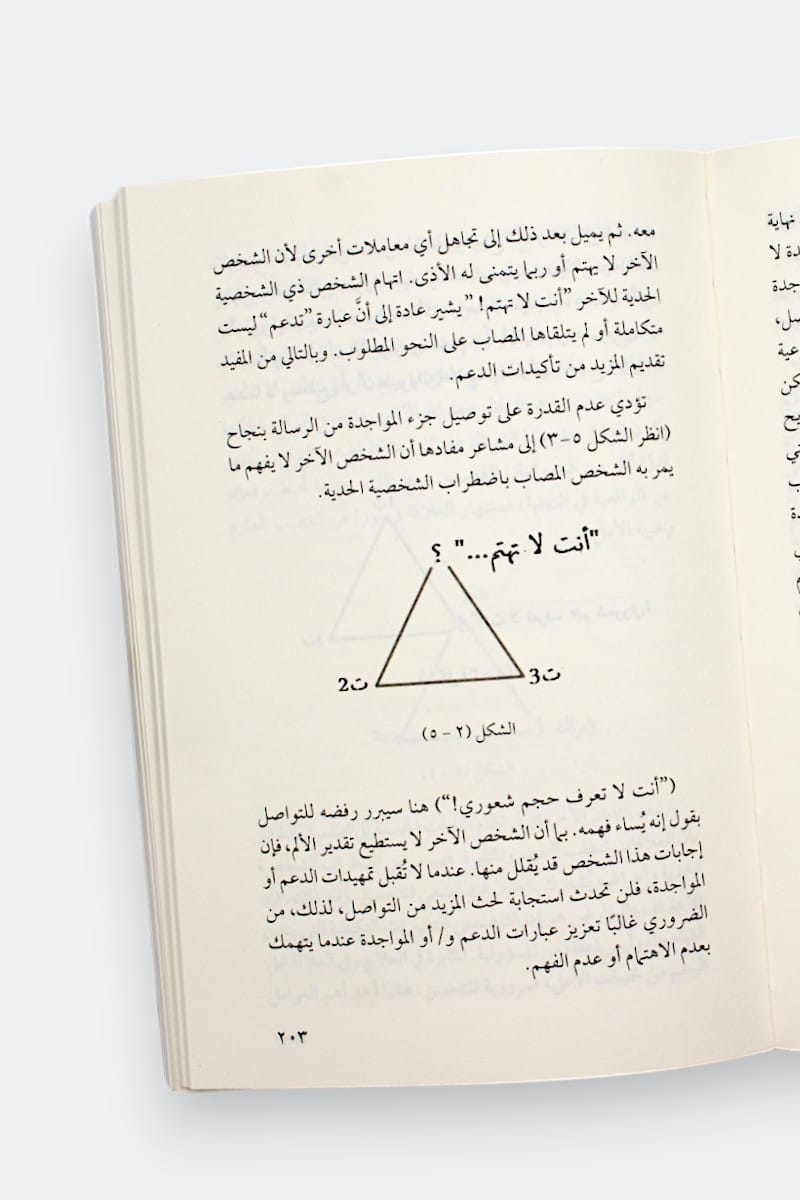 معه. ثم يميل بعد ذلك إلى تجاهل أي معاملات أخرى لأن الشخص
الآخر لا يهتم أو ربما يتمنى له الأذى. اتهام الشخص ذي الشخصية
الحدية للآخر ”أنت لا تهتم! ” يشير عادة إلى أنَّ عبارة ”تدعم“ ليست
متكاملة أو لم يتلقاها المصاب على النحو المطلوب. وبالتالي من المفيد
تقديم المزيد من تأكيدات الدعم.
تؤدي عدم القدرة على توصيل جزء المواجدة من الرسالة بنجاح
(انظر الشكل ٥-٣) إلى مشاعر مفادها أن الشخص الآخر لا يفهم ما
يمر به الشخص المصاب باضطراب الشخصية الحدية.
"أنت لا تهتم..." ؟
ت2
ت3
الشكل (٢ - ٥)
(”أنت لا تعرف حجم شعوري!“) هنا سيبرر رفضه للتواصل
بقول إنه يُساء فهمه. بما أن الشخص الآخر لا يستطيع تقدير الألم، فإن
إجابات هذا الشخص قد يُقلل منها. عندما لا تُقبل تمهيدات الدعم أو
المواجدة، فلن تحدث استجابة لحث المزيد من التواصل، لذلك، من
الضروري غالبًا تعزيز عبارات الدعم و/ أو المواجدة عندما يتهمك
بعدم الاهتمام أو عدم الفهم.
٢٠٣
نهاية